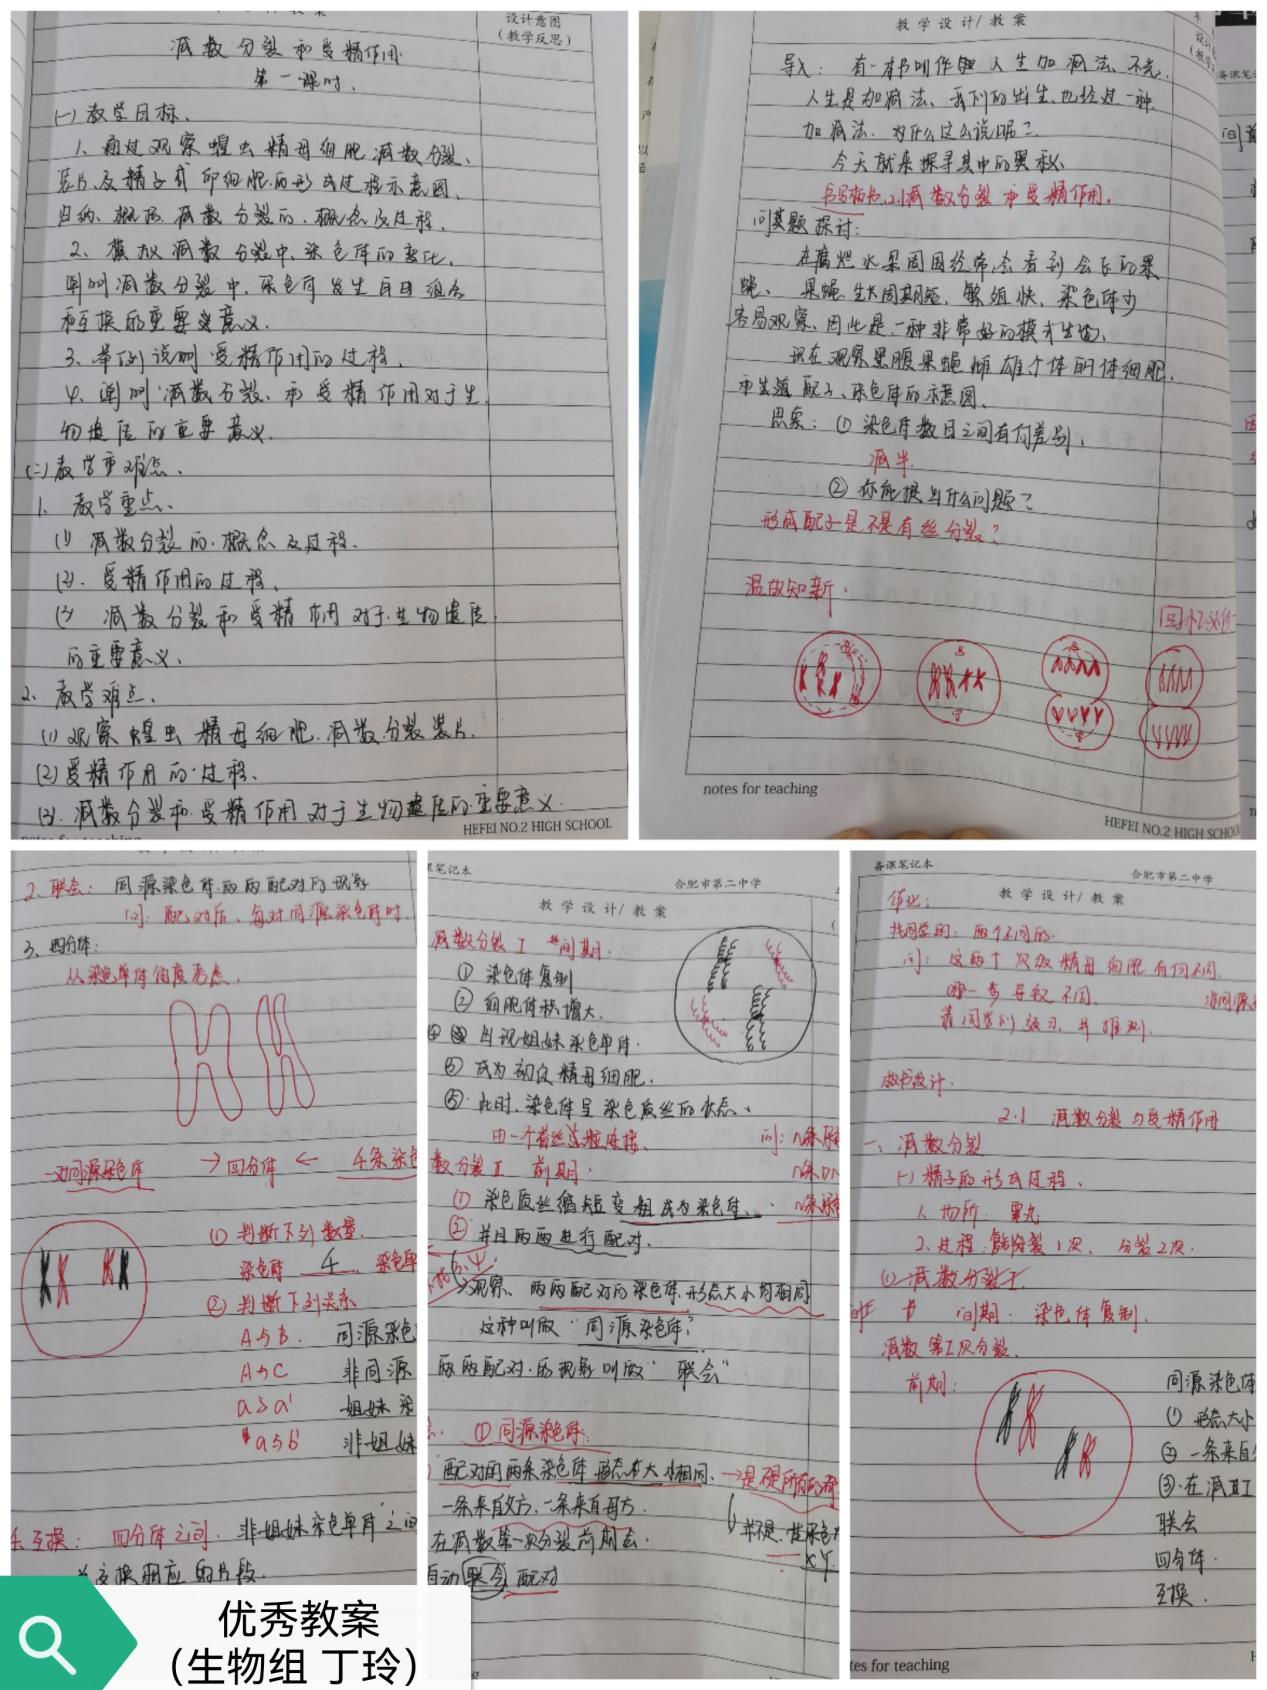 设计意图
（教学反思）
减数分裂和受精作用
第一课时、
(一)教学目标、
1、通过观察蝗虫精母细胞减数分裂、
装片、及精子或卵细胞的形成过程示意图、
归纳、概括减数分裂的概念及过程、
2、模拟减数分裂中、染色体的变化、
阐明减数分裂中、染色体发生自由组合
和互换的重要意义、
3、举例说明受精作用的过程、
4、阐明减数分裂、和受精作用对于生
物遗传的重要意义、
(二)教学重难点、
1、教学重点、
(1)减数分裂的概念及过程、
(2)、受精作用的过程、
(3)减数分裂和受精作用对于生物遗传
的重要意义、
2、教学难点、
(1)观察蝗虫精母细胞减数分裂装片、
(2)受精作用的过程、
(3)、减数分裂和受精作用对于生物遗传的重要意义、
HEFEI NO.2 HIGH SCHOOL
教学设计/教案
导入：有一本书叫作 人生加减法、不光
人生是加减法、我们的出生、也经过一种
加减法、为什么这么说呢？
今天就来探寻其中的奥秘、
书写板书、2.1减数分裂和受精作用、
问题探讨：
在腐烂水果周围经常会看到 的果
蝇、果蝇生长周期短，繁殖快，染色体少
容易观察、因此是一种非常好的模式生物、
现在观察黑腹果蝇雌雄个体的体细胞、
和 配子、染色体的示意图、
思索：①染色体数目之间有何差别、
减半、
②你能提出什么问题？
形成配子是不是有丝分裂？
温故知新、
notes for teaching
HEFEI NO.2 HIGH SCHOOL
2、联会：同源染色体两两配对的现象
问：配对后、每对同源染色体、
3、四分体：
从染色单体角度考虑、
一对同源染色体 → 四分体 ← 4条染色
①判断下列数量、
染色体 4 、染色单
②判断下列关系
A与B、同源染色
A与C 非同源
a与a' 姐妹染
a与b 非姐妹
4、互换：四分体之间、非姐妹染色单体之间
交换相应的片段、
备课笔记本
合肥市第二中学
教学设计/教案
减数分裂I 间期、
①染色体复制
②细胞体积增大、
出现姐妹染色单体、
成为初级精母细胞、
⑤此时、染色体呈染色质丝的状态、
由一个着丝粒连接、
数分裂I 前期：
①染色质丝缩短变粗成为染色体、
②并且两两进行配对、
观察、两两配对的染色体、形态大小均相同
这种叫做“同源染色体”
两两配对的现象叫做“联会”
①同源染色体：
配对的两条染色体形态大小相同、→是不是所有的
一条来自父方、一条来自母方、
并不是、性染色
XY
在减数第一次分裂前期会
自动联会配对
备课笔记本
合肥市第二中学
教学设计/教案
作业：
找同学的：两个不同的、
问：这两个次级精母细胞有何不同、
哪一步导致不同、
请同学们预习、并推测、
板书设计、
2.1 减数分裂与受精作用
一、减数分裂
(一)精子的形成过程、
1、场所：睾丸
2、过程：复制1次、分裂2次、
(1)减数分裂I、
间期：染色体复制、
减数第I次分裂、
前期：
同源染色体
①形态大小
②一条来自
③在减数I
联会
四分体、
互换、
tes for teaching
优秀教案
（生物组 丁玲）